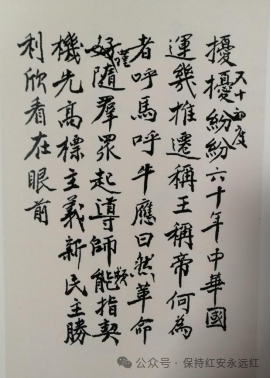 擾擾紛紛六十年中華國
運幾推遷稱王稱帝何為
者呼馬呼牛應曰然革命
好隨羣眾起導師能指契
機先高標主義新民主勝
利欣看在眼前
公众号·保持红安永远红